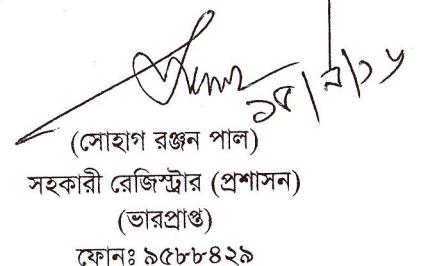 (সোহাগ রঞ্জন পাল)
সহকারী রেজিস্ট্রার (প্রশাসন)
(ভারপ্রাপ্ত)
ফোনঃ ৯৫৮৮৪২৯